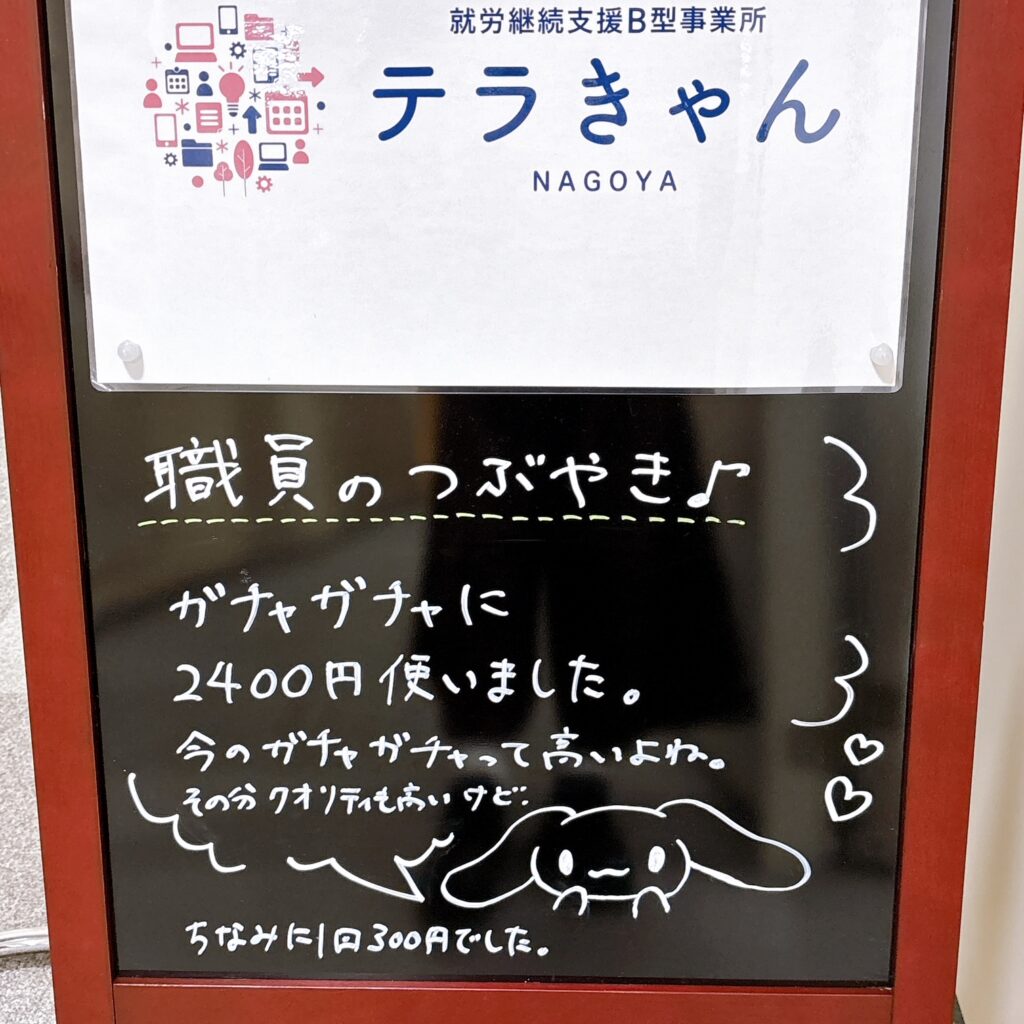 就労継続支援B型事業所
テラきゃん
NAGOYA
職員のつぶやき♪
ガチャガチャに
2400円使いました。
今のガチャガチャって高いよね。
その分クオリティも高いけど.
ちなみに1回300円でした。